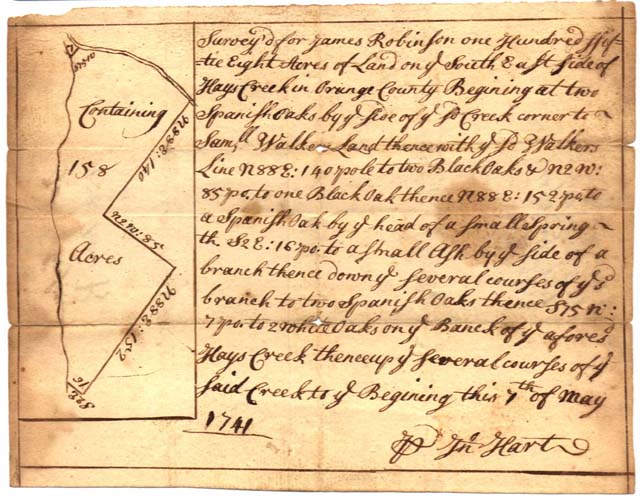 Survey'd for James Robinson one Hundred ffif-
tie Eight Acres of Land on ye South East side of
Hays Creek in Orange County Begining at two
Spanish Oaks by ye side of ye sd Creek corner to
Samll Walker Land thence with ye sd Walkers
Line N88E: 140 pole to two Black Oaks & N2W:
85 po. to one Black Oak thence N88E: 152 po. to
a Spanish Oak by ye head of a small Spring
th. S2E: 16 po. to a small Ash by ye side of a
branch thence down ye several courses of ye sd
branch to two Spanish Oaks thence S75W:
7 po. to 2 white Oaks on ye Banck of ye afores.d
Hays Creek thence up ye several courses of ye
said Creek to ye Begining this 7th of May
1741
Jno. Hart
Containing
158
Acres
S75W
N88E: 140
N2W: 85
N88E: 152
S2E 16